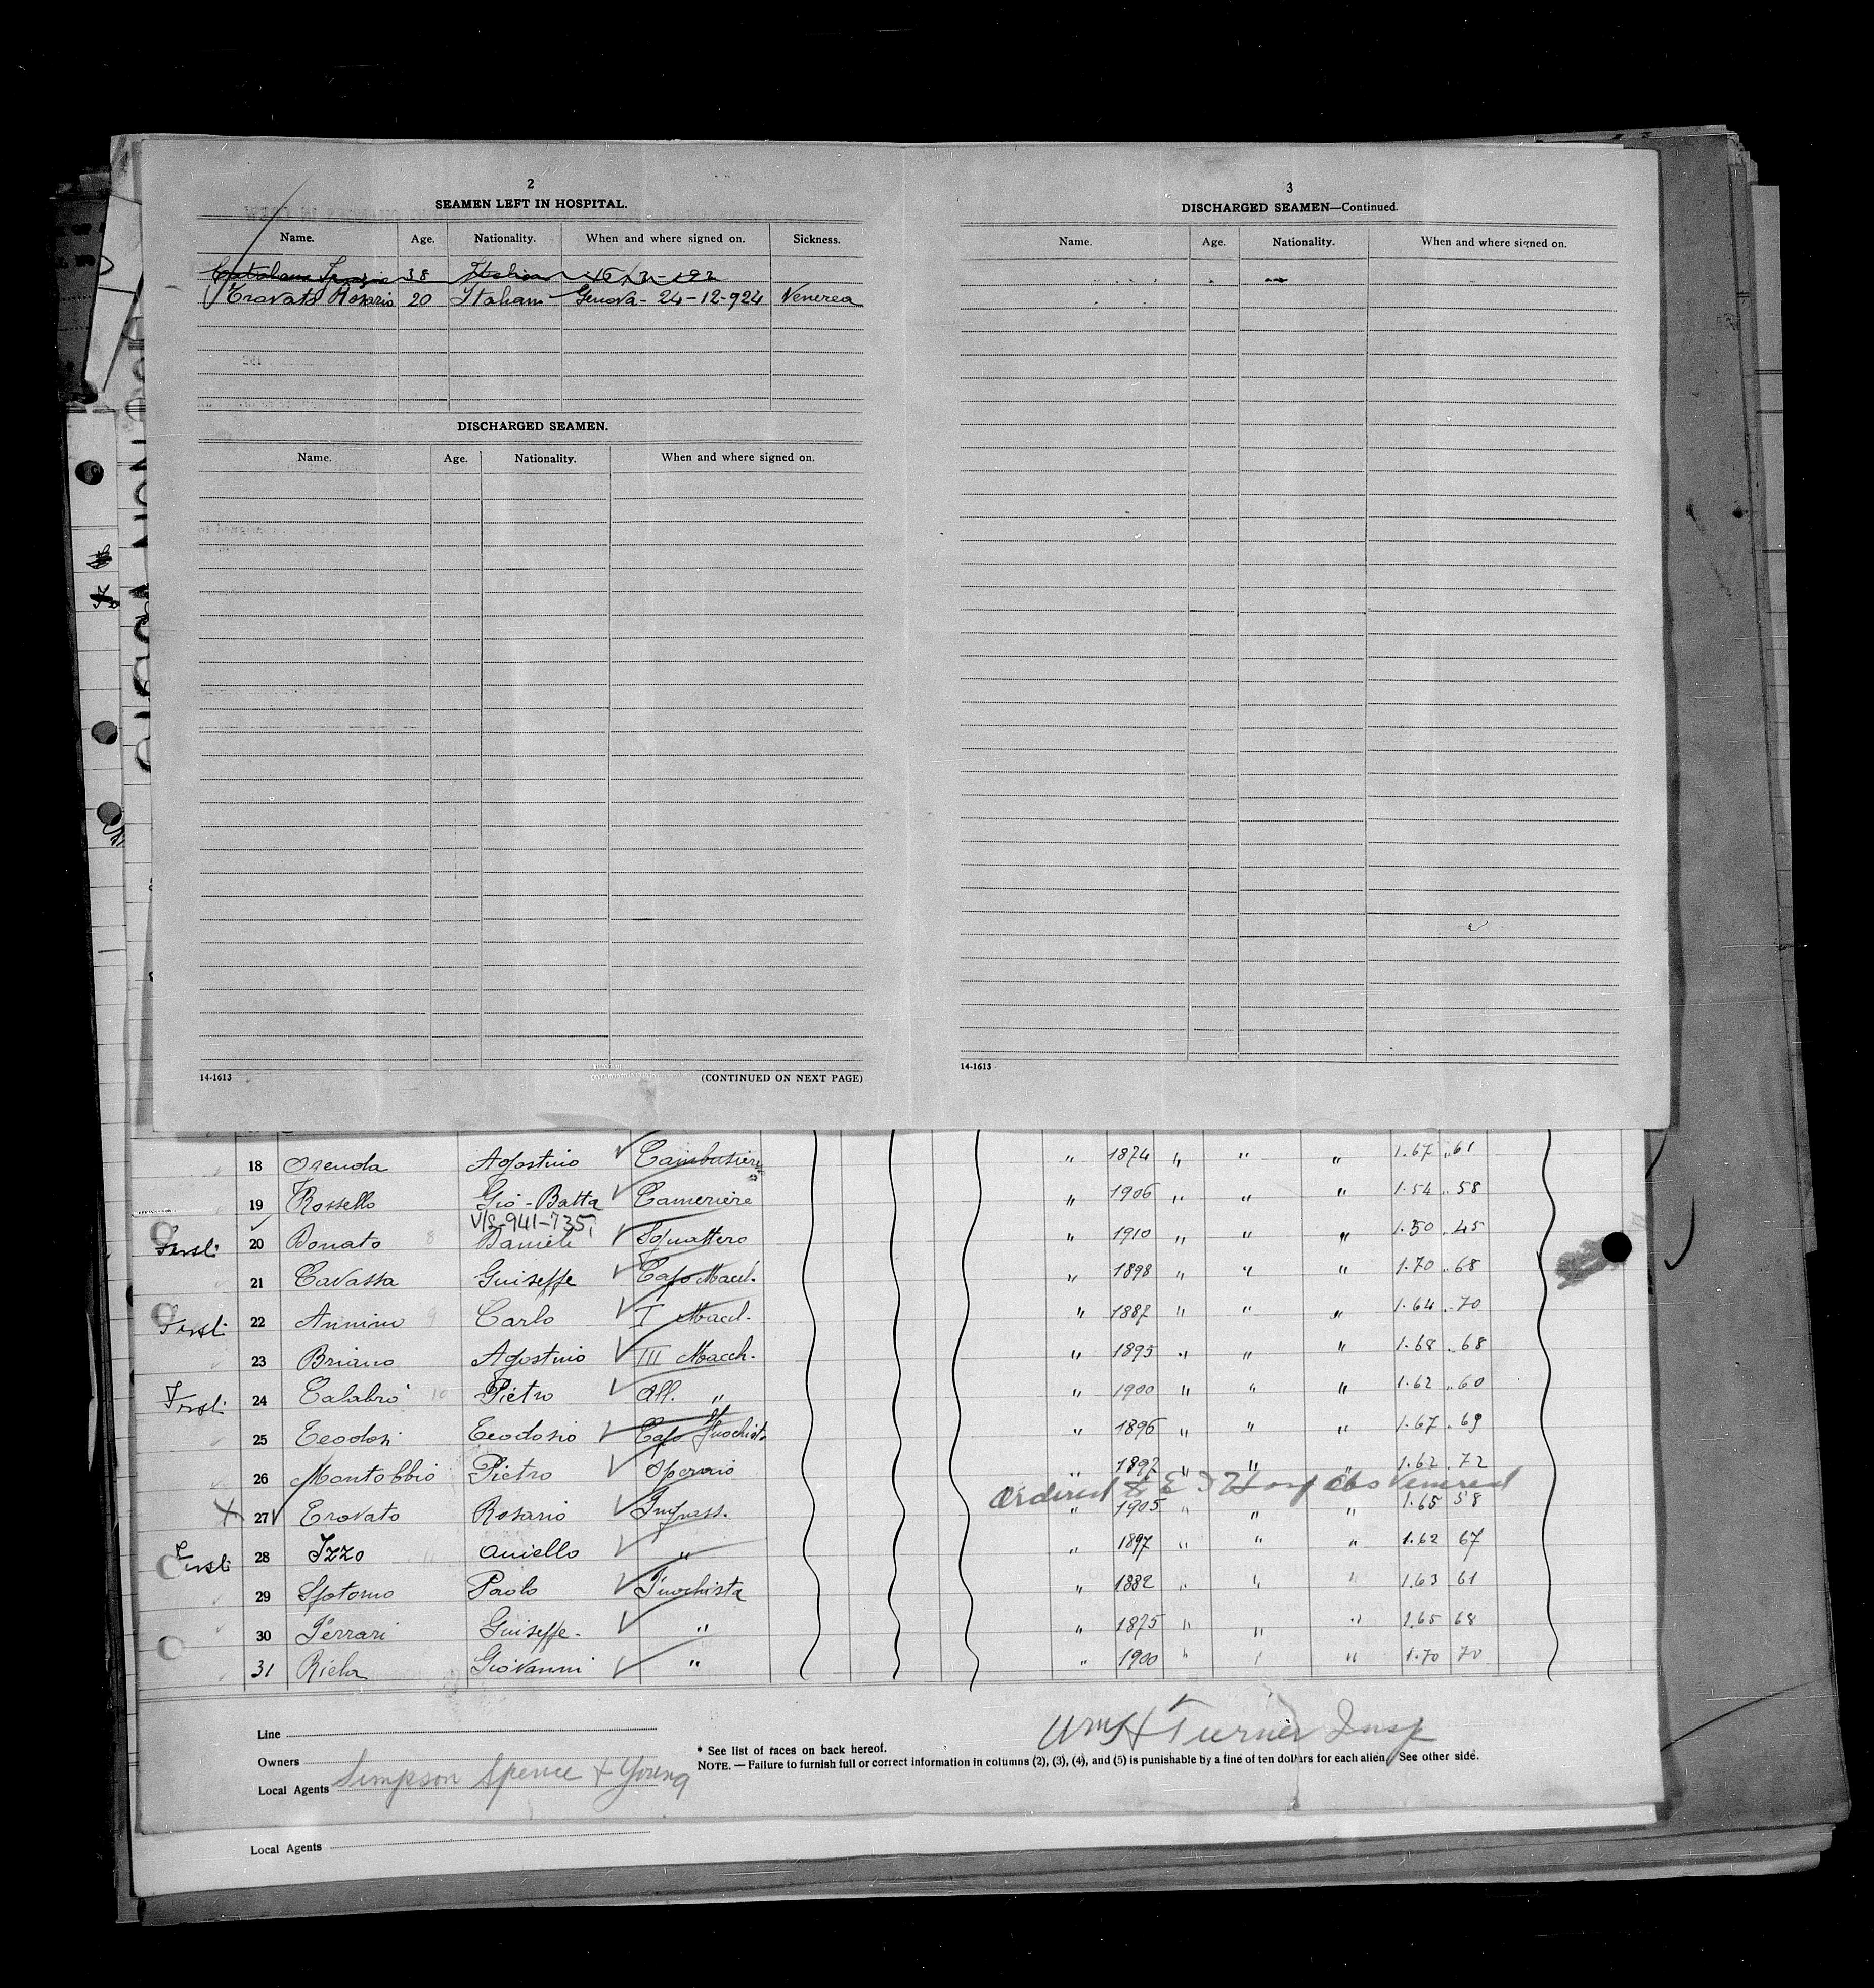 2
SEAMEN LEFT IN HOSPITAL.
Name. Age. Nationality. When and where signed on. Sickness.
38
Trovato Rosario 20 Italiano Genova - 24-12-924 Venerea
DISCHARGED SEAMEN.
Name. Age. Nationality. When and where signed on.
14-1613 (CONTINUED ON NEXT PAGE)
3
DISCHARGED SEAMEN—Continued.
Name. Age. Nationality. When and where signed on.
14-1613
18 Agostino Cambusiere " 1874 " " " 1.67 " 61
19 Rossello Gio-Batta Cameriere " 1906 " " " 1.54 " 58
V/S-941-735,
20 Donato 8 Daniele Sguattero " 1910 " " " 1.50 " 45
21 Cavassa Guiseppe Capo Macch. " 1898 " " " 1.70 " 68
22 Annino 9 Carlo I Macch. " 1887 " " " 1.64 " 70
23 Briano Agostino III Macch. " 1895 " " " 1.68 " 68
24 Calabro' 10 Pietro All. " " 1900 " " " 1.62 " 60
25 Teodosi Teodosio Capo Fuochista " 1896 " " " 1.67 " 69
26 Montobbio Pietro Operaio " 1897 " " " 1.62 " 72
Ordered to E I Hosp Venereal
27 Trovato Rosario Ingrass. " 1905 " " " 1.65 58
28 Izzo 11 Aniello " " 1897 " " " 1.62 67
29 Spotorno Paolo Fuochista " 1882 " " " 1.63 61
30 Ferrari Guiseppe - " " 1875 " " " 1.65 68
31 Giovanni " " 1900 " " " 1.70 70
Line
Wm H Turner Insp
Owners
* See list of races on back hereof.
NOTE. — Failure to furnish full or correct information in columns (2), (3), (4), and (5) is punishable by a fine of ten dollars for each alien. See other side.
Local Agents Simpson Spence & Young
Local Agents